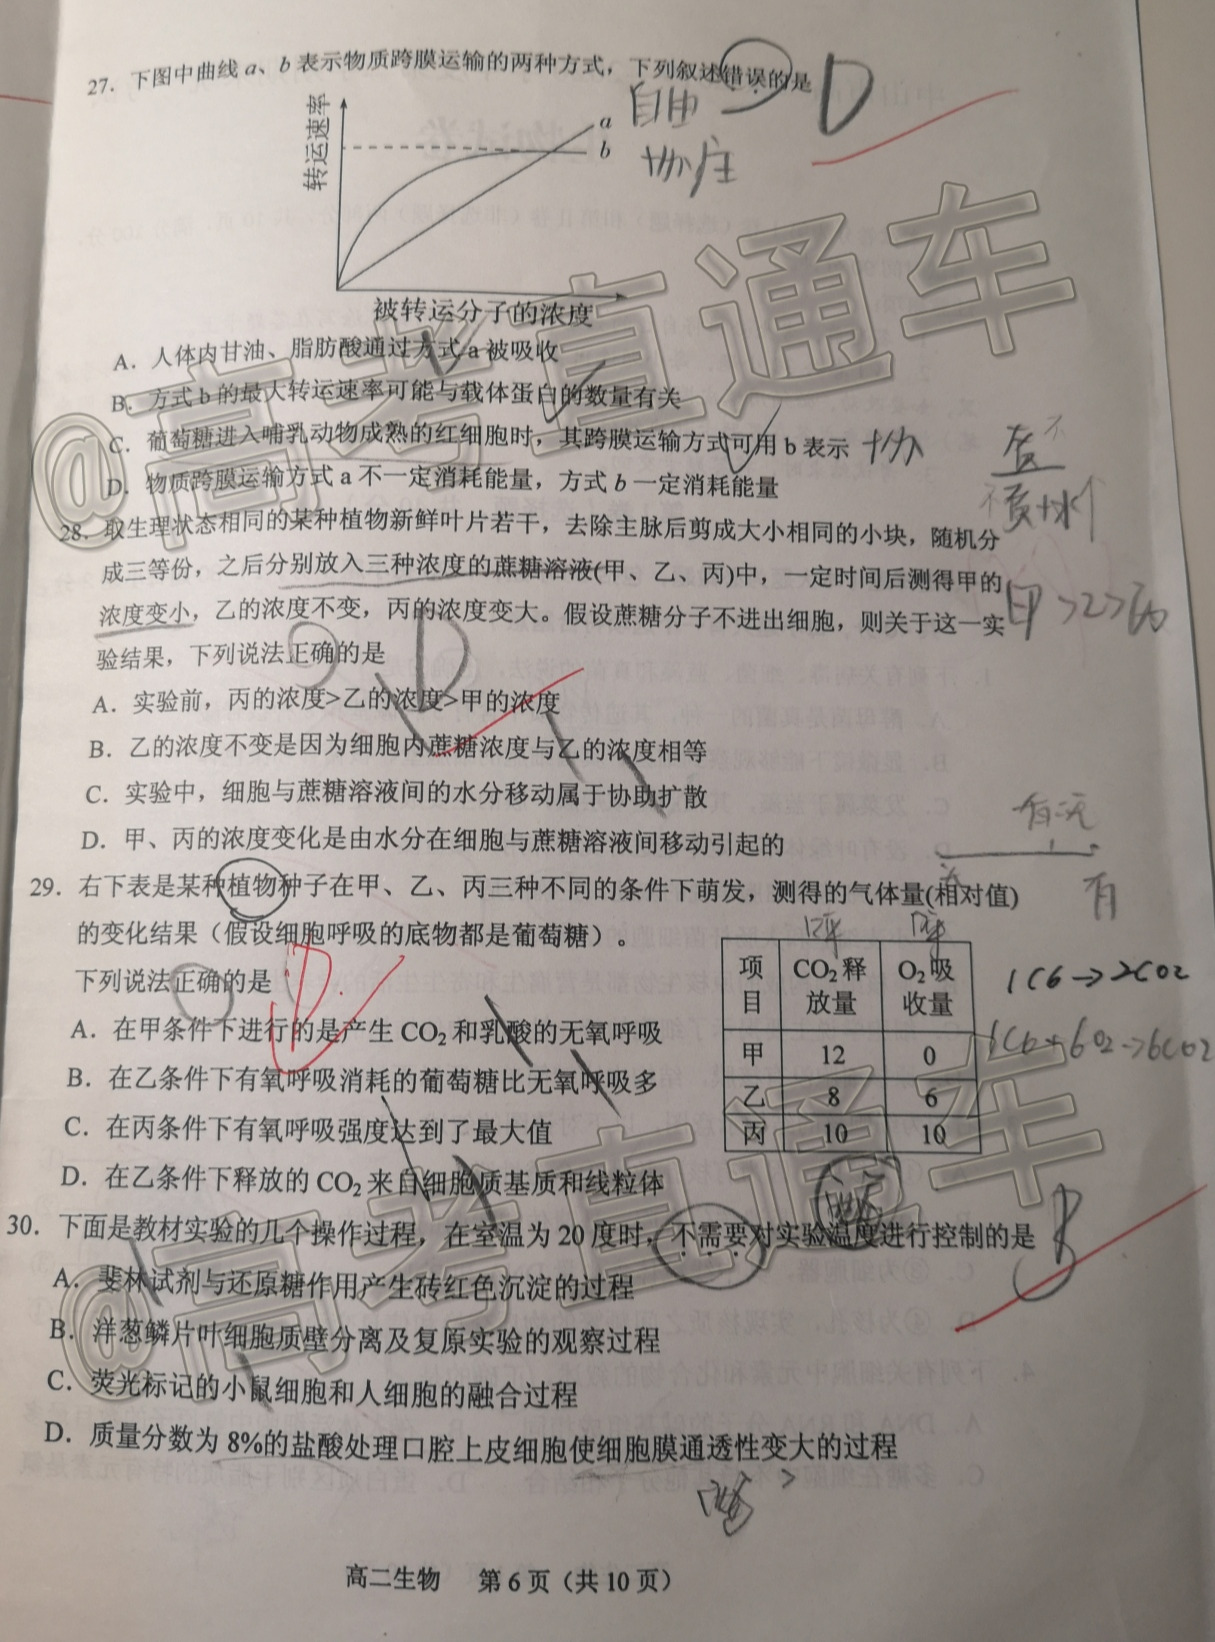 27. 下图中曲线a、b表示物质跨膜运输的两种方式，下列叙述错误的是
D
转运速率
a
b
自由
协/主
被转运分子的浓度
A. 人体内甘油、脂肪酸通过方式a被吸收
B. 方式b的最大转运速率可能与载体蛋白的数量有关
C. 葡萄糖进入哺乳动物成熟的红细胞时，其跨膜运输方式可用b表示
协
D. 物质跨膜运输方式a不一定消耗能量，方式b一定消耗能量
28. 取生理状态相同的某种植物新鲜叶片若干，去除主脉后剪成大小相同的小块，随机分
成三等份，之后分别放入三种浓度的蔗糖溶液(甲、乙、丙)中，一定时间后测得甲的
浓度变小，乙的浓度不变，丙的浓度变大。假设蔗糖分子不进出细胞，则关于这一实
甲>乙>丙
验结果，下列说法正确的是
D
A. 实验前，丙的浓度>乙的浓度>甲的浓度
B. 乙的浓度不变是因为细胞内蔗糖浓度与乙的浓度相等
C. 实验中，细胞与蔗糖溶液间的水分移动属于协助扩散
D. 甲、丙的浓度变化是由水分在细胞与蔗糖溶液间移动引起的
29. 右下表是某种植物种子在甲、乙、丙三种不同的条件下萌发，测得的气体量(相对值)
有
的变化结果（假设细胞呼吸的底物都是葡萄糖）。
下列说法正确的是
D
项目 CO2释放量 O2吸收量
甲 12 0
乙 8 6
丙 10 10
1C6→2CO2
1C6+6O2→6CO2
A. 在甲条件下进行的是产生CO2和乳酸的无氧呼吸
B. 在乙条件下有氧呼吸消耗的葡萄糖比无氧呼吸多
C. 在丙条件下有氧呼吸强度达到了最大值
D. 在乙条件下释放的CO2来自细胞质基质和线粒体
30. 下面是教材实验的几个操作过程，在室温为20度时，不需要对实验温度进行控制的是
B
A. 斐林试剂与还原糖作用产生砖红色沉淀的过程
B. 洋葱鳞片叶细胞质壁分离及复原实验的观察过程
C. 荧光标记的小鼠细胞和人细胞的融合过程
D. 质量分数为8%的盐酸处理口腔上皮细胞使细胞膜通透性变大的过程
高二生物 第6页（共10页）
@高考直通车
@高考直通车